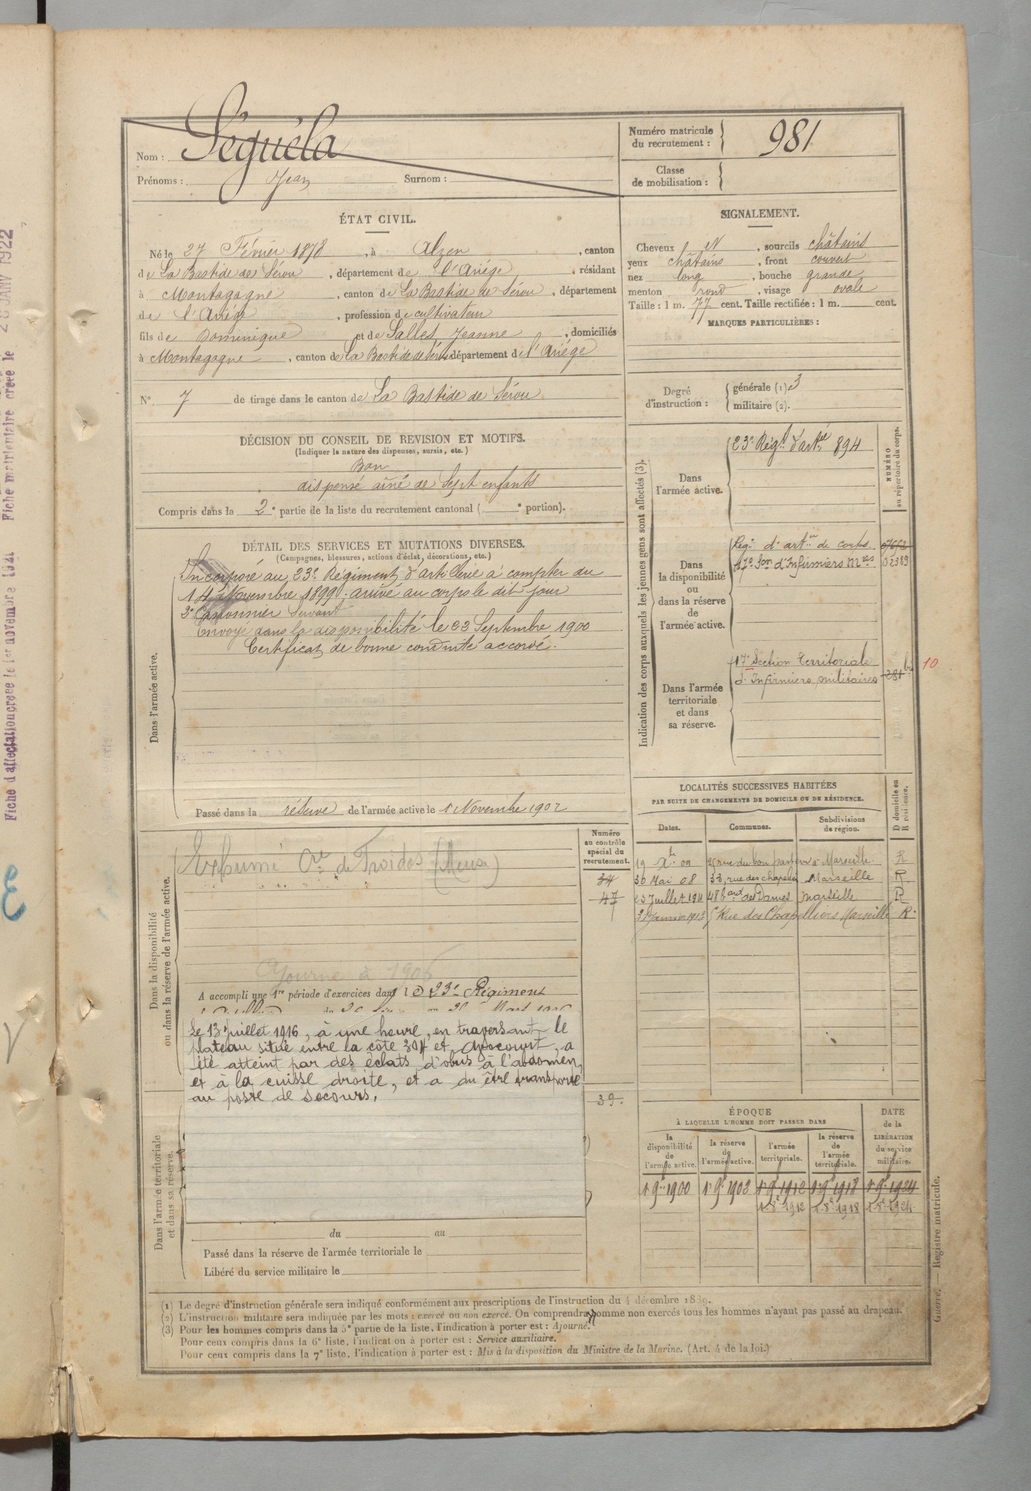 Nom : Séguéla
Prénoms : Jean Surnom :
Numéro matricule du recrutement : 981
Classe de mobilisation :
ÉTAT CIVIL.
Né le 27 Février 1878, à Alzen, canton
de La Bastide de Sérou, département de l'Ariége, résidant
à Montagagne, canton de La Bastide de Sérou, département
de l'Ariége, profession de cultivateur
fils de Dominique et de Salles Jeanne, domiciliés
à Montagagne, canton de La Bastide de Sérou département de l'Ariége
N° 7 de tirage dans le canton de La Bastide de Sérou
SIGNALEMENT.
Cheveux N, sourcils châtains
yeux châtains, front couvert
nez long, bouche grande
menton rond, visage ovale
Taille : 1 m. 77 cent. Taille rectifiée : 1 m. cent.
MARQUES PARTICULIÈRES :
Degré d'instruction : générale (1) 3
militaire (2).
DÉCISION DU CONSEIL DE REVISION ET MOTIFS.
(Indiquer la nature des dispenses, sursis, etc.)
Bon
dispensé aîné de Sept enfants
Compris dans la 2e partie de la liste du recrutement cantonal ( e portion).
DÉTAIL DES SERVICES ET MUTATIONS DIVERSES.
(Campagnes, blessures, actions d'éclat, décorations, etc.)
Dans l'armée active.
Incorporé au 23e Régiment d'artillerie à compter du
14 Novembre 1899. arrivé au corps le dit jour
2e Canonnier Servant
Envoyé dans la disponibilité le 23 Septembre 1900
Certificat de bonne conduite accordé.
Passé dans la réserve de l'armée active le 1 Novembre 1902
Indication des corps auxquels les jeunes gens sont affectés (3).
NUMÉRO au répertoire du corps.
Dans l'armée active.
23e Régt d'artie 894
Dans la disponibilité ou dans la réserve de l'armée active.
Régt d'artie de corps
17e Son d'Infirmiers Mres
Dans l'armée territoriale et dans sa réserve.
17e Section Territoriale
d'Infirmiers militaires
10
LOCALITÉS SUCCESSIVES HABITÉES
PAR SUITE DE CHANGEMENTS DE DOMICILE OU DE RÉSIDENCE.
Dates. Communes. Subdivisions de région. D domicile ou R résidence.
Marseille R
30 Mai 08 33, rue des chapeliers Marseille R
23 Juillet 1911 48 bard des Dames Marseille R
Rue des Chapelliers Marseille R.
Numéro au contrôle spécial du recrutement.
34
47
39.
Dans la disponibilité ou dans la réserve de l'armée active.
Exhumé Cre de Froidos (Meuse)
Ajourné à 1906
A accompli une 1re période d'exercices dans le 23e Régiment
Le 13 juillet 1916, à une heure, en traversant le
plateau situé entre la côte 304 et Avocourt, a
été atteint par des éclats d'obus à l'abdomen
et à la cuisse droite, et a du être transporté
au poste de secours.
Dans l'armée territoriale et dans sa réserve.
du au
Passé dans la réserve de l'armée territoriale le
Libéré du service militaire le
ÉPOQUE
À LAQUELLE L'HOMME DOIT PASSER DANS
DATE de la LIBÉRATION du service militaire.
la disponibilité de l'armée active. la réserve de l'armée active. l'armée territoriale. la réserve de l'armée territoriale.
1 9bre 1900 1 9bre 1903 1 9bre 1912 1 9bre 1918 1 9bre 1924
1 8bre 1912 1 8bre 1918 1 8bre 1924
(1) Le degré d'instruction générale sera indiqué conformément aux prescriptions de l'instruction du 4 décembre 1889.
(2) L'instruction militaire sera indiquée par les mots : exercé ou non exercé. On comprendra comme non exercés tous les hommes n'ayant pas passé au drapeau.
(3) Pour les hommes compris dans la 5e partie de la liste, l'indication à porter est : Ajourné.
Pour ceux compris dans la 6e liste, l'indication à porter est : Service auxiliaire.
Pour ceux compris dans la 7e liste, l'indication à porter est : Mis à la disposition du Ministre de la Marine. (Art. 4 de la loi.)
Guerre. — Registre matricule.